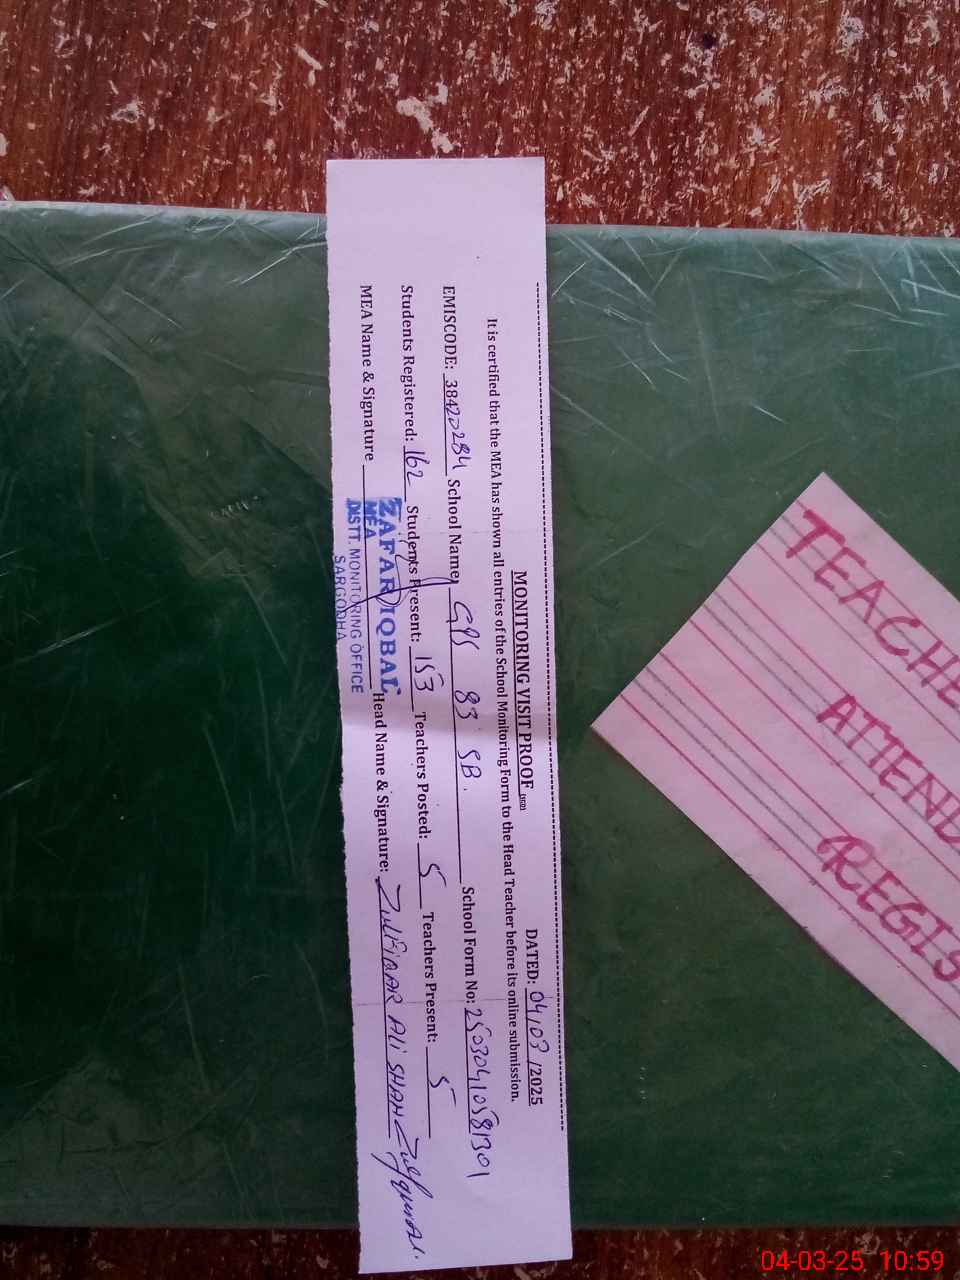 MONITORING VISIT PROOF (SGD) DATED: 04/03/2025
It is certified that the MEA has shown all entries of the School Monitoring Form to the Head Teacher before its online submission.
EMISCODE: 38420284 School Name: GPS 83 SB. School Form No: 25030410581301
Students Registered: 162 Students Present: 153 Teachers Posted: 5 Teachers Present: 5
MEA Name & Signature Head Name & Signature: Zulfiqar Ali SHAH
ZAFAR IQBAL
MEA
DISTT. MONITORING OFFICE
SARGODHA
TEACHE
ATTEND
REGIS
04-03-25 10:59